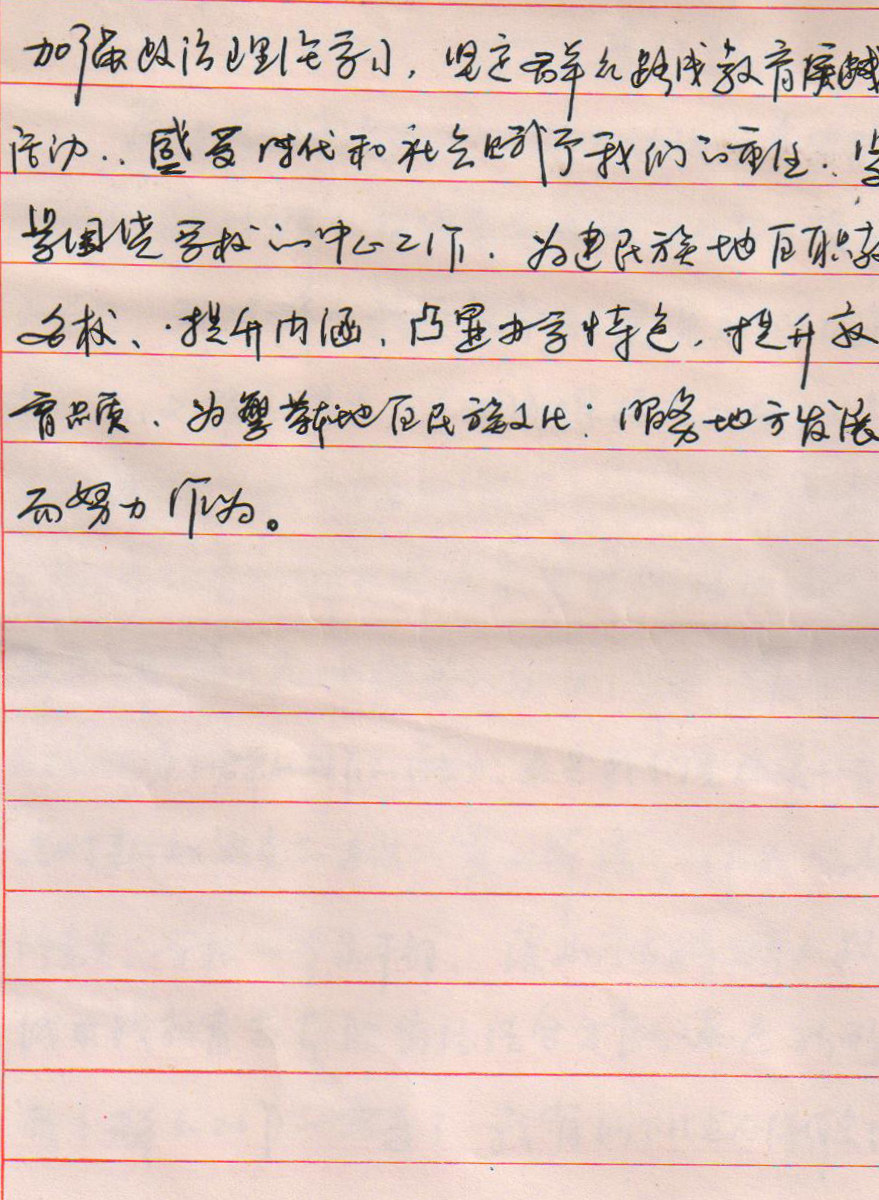 加强政治理论学习，坚定群众路线教育实践
活动，感受时代和社会赋予我们的重任，紧
紧围绕学校的中心工作，为建民族地区职教
名校、提升内涵，凸显办学特色，提升教
育品质，为繁荣本地区民族文化；服务地方发展
而努力作为。